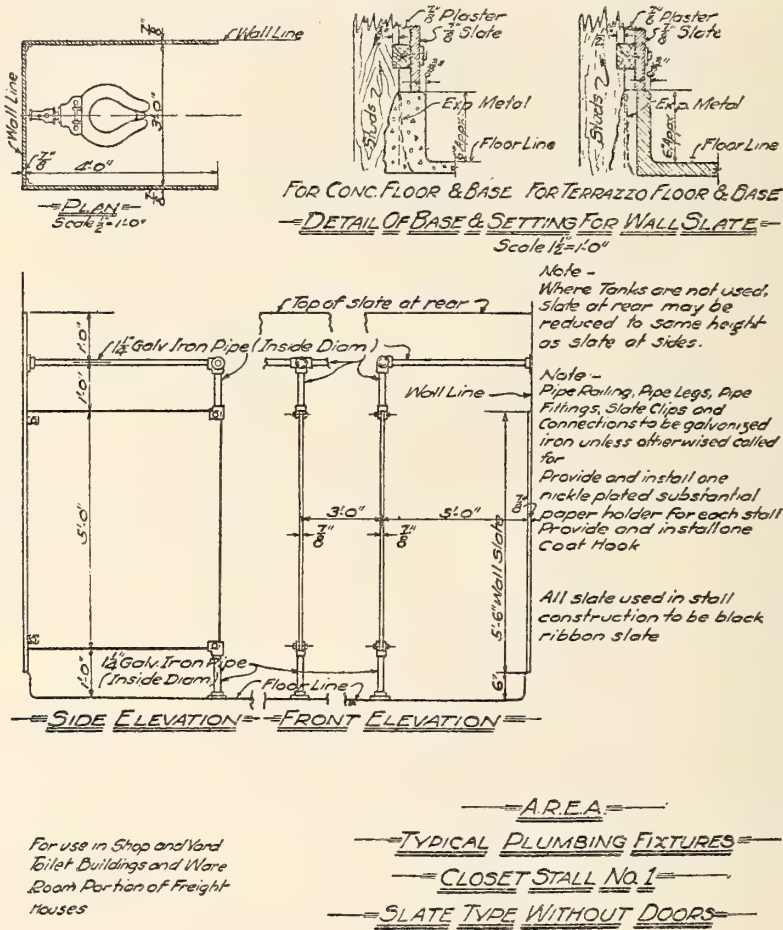 7/8"
Wall Line
Wall Line
3'-0"
7/8"
4'-0"
7/8"
PLAN
Scale ½"=1'-0"
7/8" Plaster
7/8" Slate
Studs
Exp. Metal
6" Appx.
Floor Line
FOR CONC. FLOOR & BASE
7/8" Plaster
7/8" Slate
Studs
Exp. Metal
6" Appx.
Floor Line
FOR TERRAZZO FLOOR & BASE
DETAIL OF BASE & SETTING FOR WALL SLATE
Scale 1½"=1'-0"
Note -
Where Tanks are not used,
slate at rear may be
reduced to same height
as slate at sides.
Note -
Pipe Railing, Pipe Legs, Pipe
Fittings, Slate Clips and
Connections to be galvanized
iron unless otherwised called
for
Provide and install one
nickle plated substantial
paper holder for each stall
Provide and install one
Coat Hook
All slate used in stall
construction to be black
ribbon slate
Top of slate at rear
1'-0"
1¼" Galv. Iron Pipe (Inside Diam.)
1'-0"
Wall Line
5'-0"
3'-0"
5'-0"
7/8"
7/8"
7/8"
5'-6" Wall Slate
1¼" Galv. Iron Pipe
(Inside Diam.)
1'-0"
Floor Line
6"
SIDE ELEVATION
FRONT ELEVATION
For use in Shop and Yard
Toilet Buildings and Ware
Room Portion of Freight
Houses
A.R.E.A.
TYPICAL PLUMBING FIXTURES
CLOSET STALL No. 1
SLATE TYPE WITHOUT DOORS